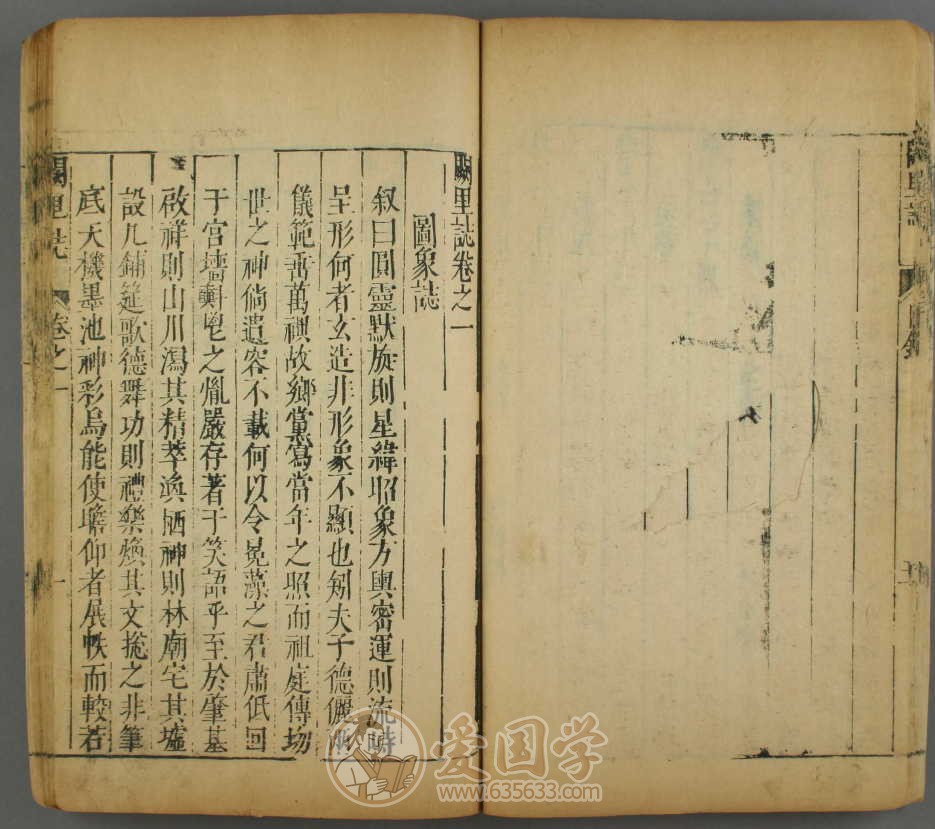 闕里誌卷之一
圖象誌
叙曰圓靈默旋則星緯昭象方輿密運則流峙
呈形何者玄造非形象不顯也矧夫子德儷兩
儀範垂萬禩故鄉黨寫當年之照而祖庭傳
世之神倘遺容不載何以令冕藻之君肅低回
于宮墻斟鬯之胤嚴存著于笑語乎至於肇基
啟祥則山川瀉其精萃渙栖神則林廟宅其墟
設几鋪筵歌德舞功則禮樂煥其文揔之非筆
底天機墨池神彩烏能使瞻仰者展帙而較若
闕里誌
卷之一
一
爱国学
www.635633.com